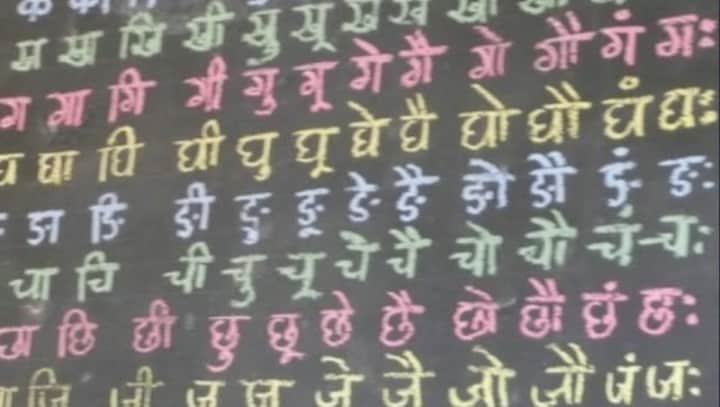 ख खा खि खी खु खू खे खै खो
ग गा गि गी गु गू गे गै गो गौ गं गः
घ घा घि घी घु घू घे घै घो घौ घं घः
ङा ङि ङी ङु ङू ङे ङै ङो ङौ ङं ङः
चा चि ची चु चू चे चै चो चौ चं चः
छा छि छी छु छू छे छै छो छौ छं छः
जि जी जु जू जे जै जो जौ जं जः